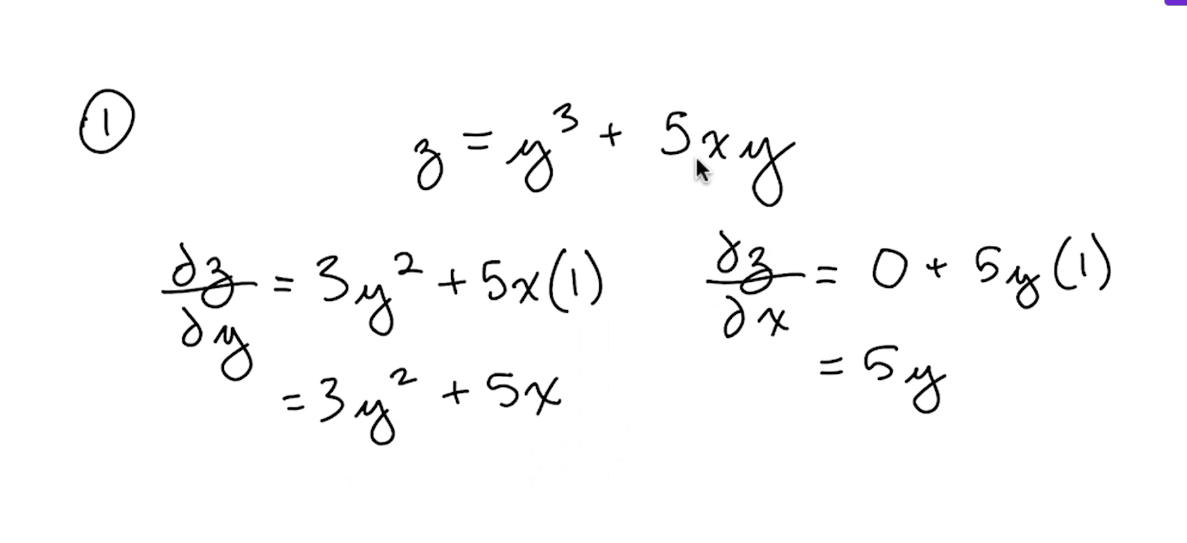 ①
z = y³ + 5xy
∂z/∂y = 3y² + 5x(1)
= 3y² + 5x
∂z/∂x = 0 + 5y(1)
= 5y